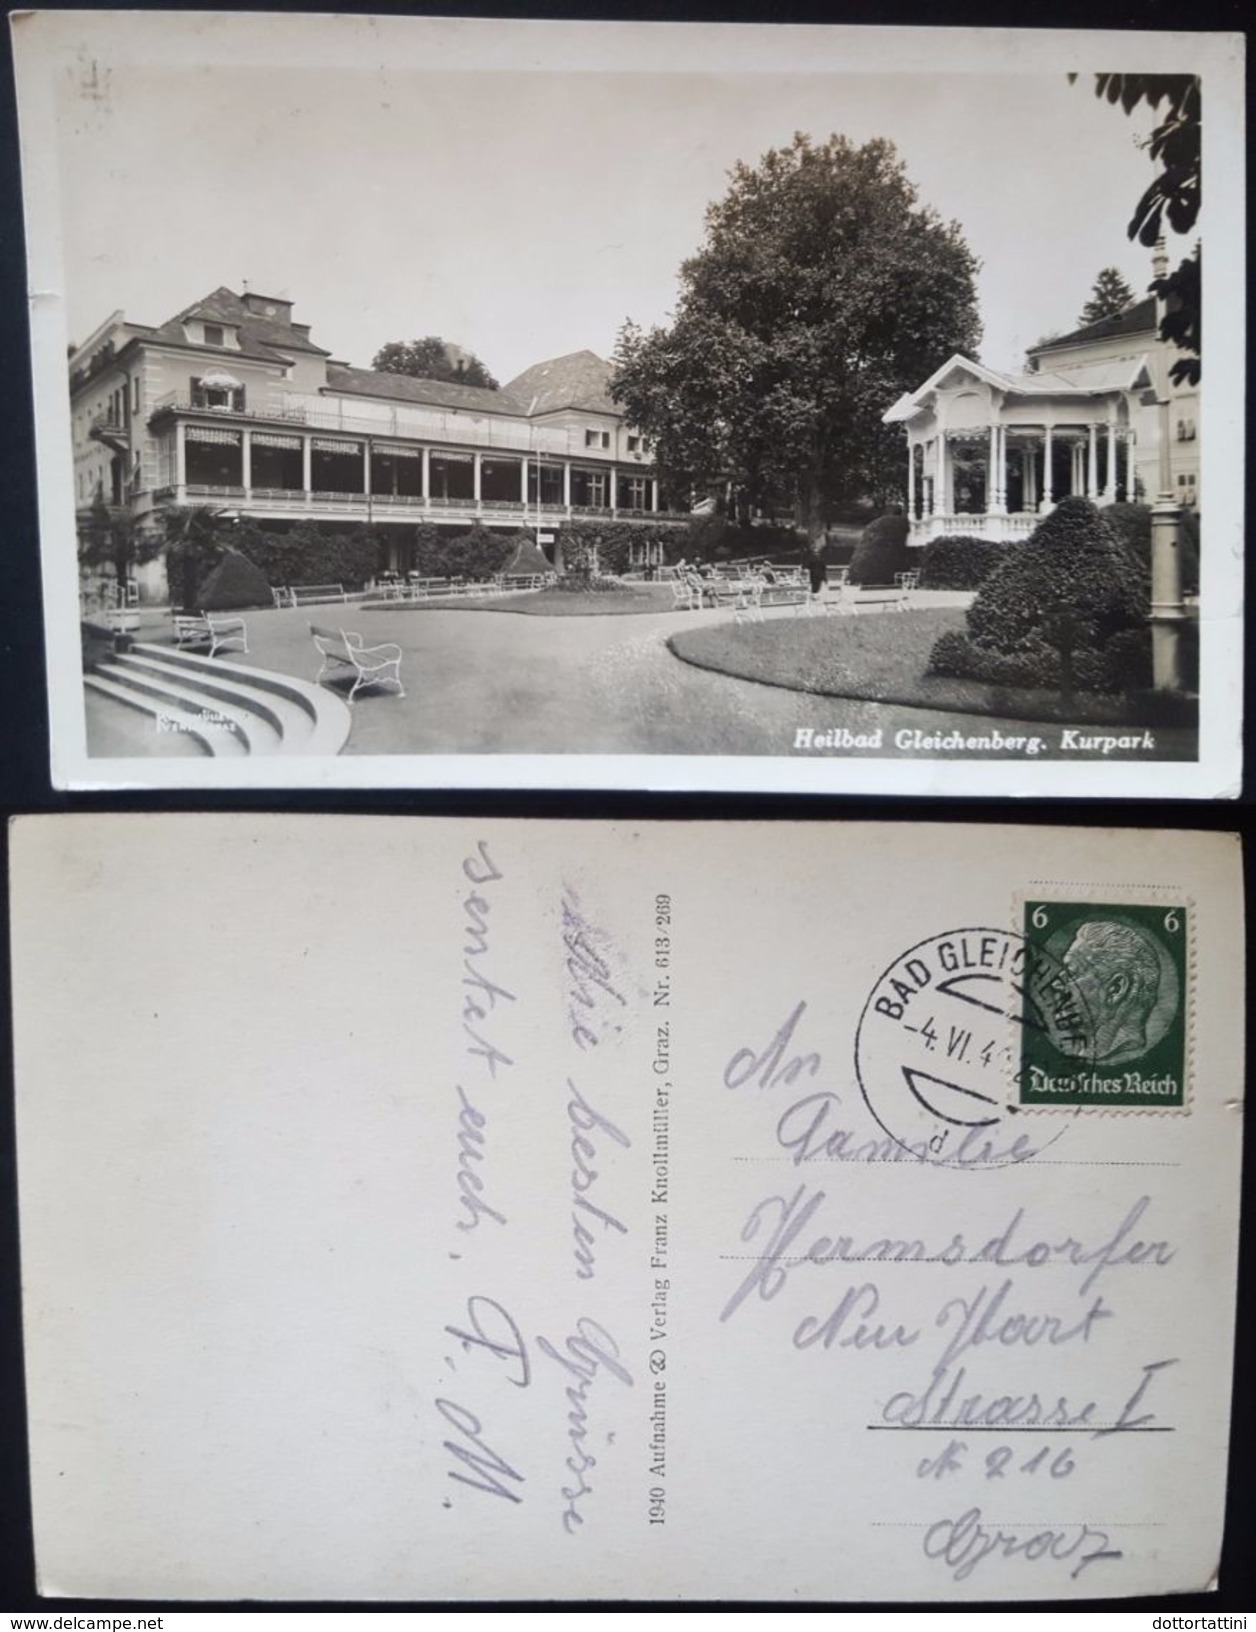 Heilbad Gleichenberg. Kurpark
Die besten Grüsse
sentet euch. F. M.
1940 Aufnahme & Verlag Franz Knollmüller, Graz. Nr. 613/269
6 6
Deutsches Reich
BAD GLEICHENBERG
-4. VI. 4
d
An
Familie
Hermsdorfer
Neu Hart
Strasse I
Nr 216
Graz
dottortattini